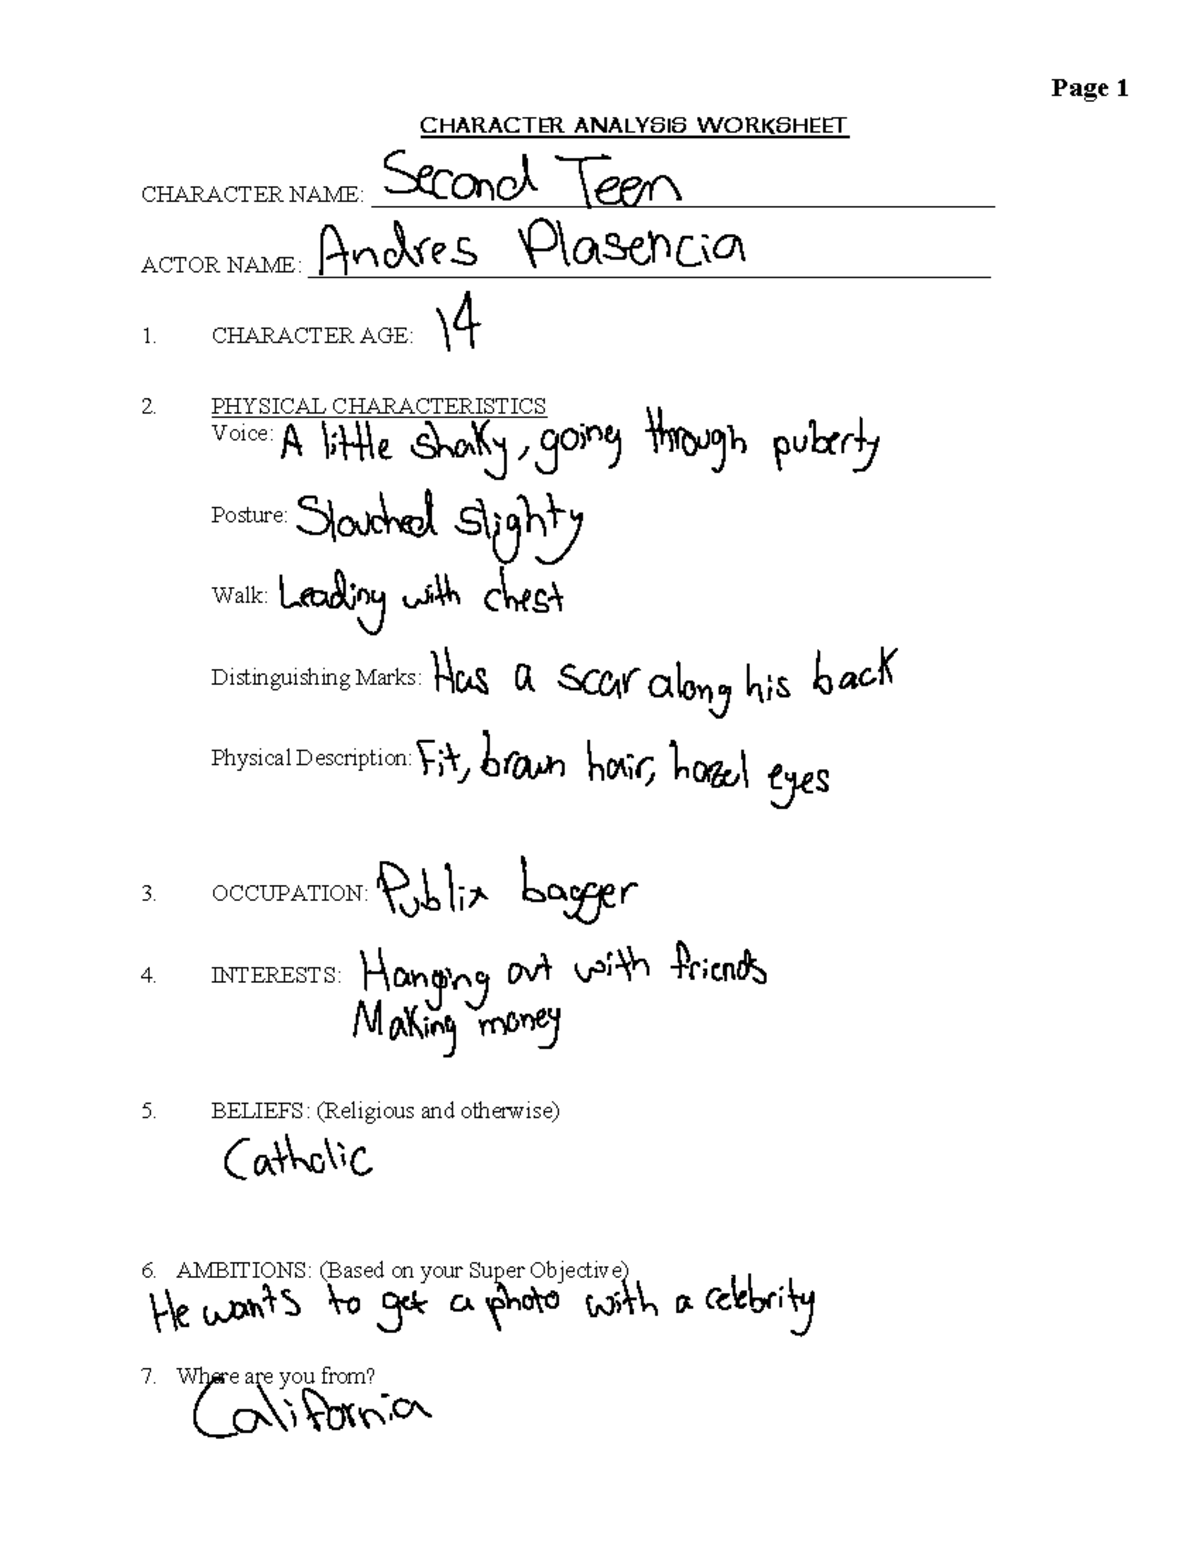 Page 1
CHARACTER ANALYSIS WORKSHEET
CHARACTER NAME: Second Teen
ACTOR NAME: Andres Plasencia
1. CHARACTER AGE: 14
2. PHYSICAL CHARACTERISTICS
Voice: A little shaky, going through puberty
Posture: Slouched slighty
Walk: Leading with chest
Distinguishing Marks: Has a scar along his back
Physical Description: Fit, brown hair, hazel eyes
3. OCCUPATION: Publix bagger
4. INTERESTS: Hanging out with friends
Making money
5. BELIEFS: (Religious and otherwise)
Catholic
6. AMBITIONS: (Based on your Super Objective)
He wants to get a photo with a celebrity
7. Where are you from?
California